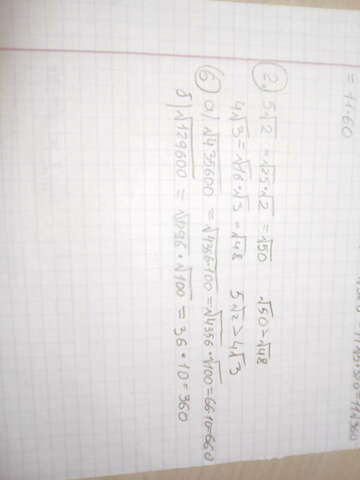 = 11·60
2. 5√2 = √25·√2 = √50 √50 > √48
4√3 = √16·√3 = √48 5√2 > 4√3
6 а) √435600 = √4356·100 = √4356 · √100 = 66·10=660
б) √129600 = √1296 · √100 = 36 · 10 = 360